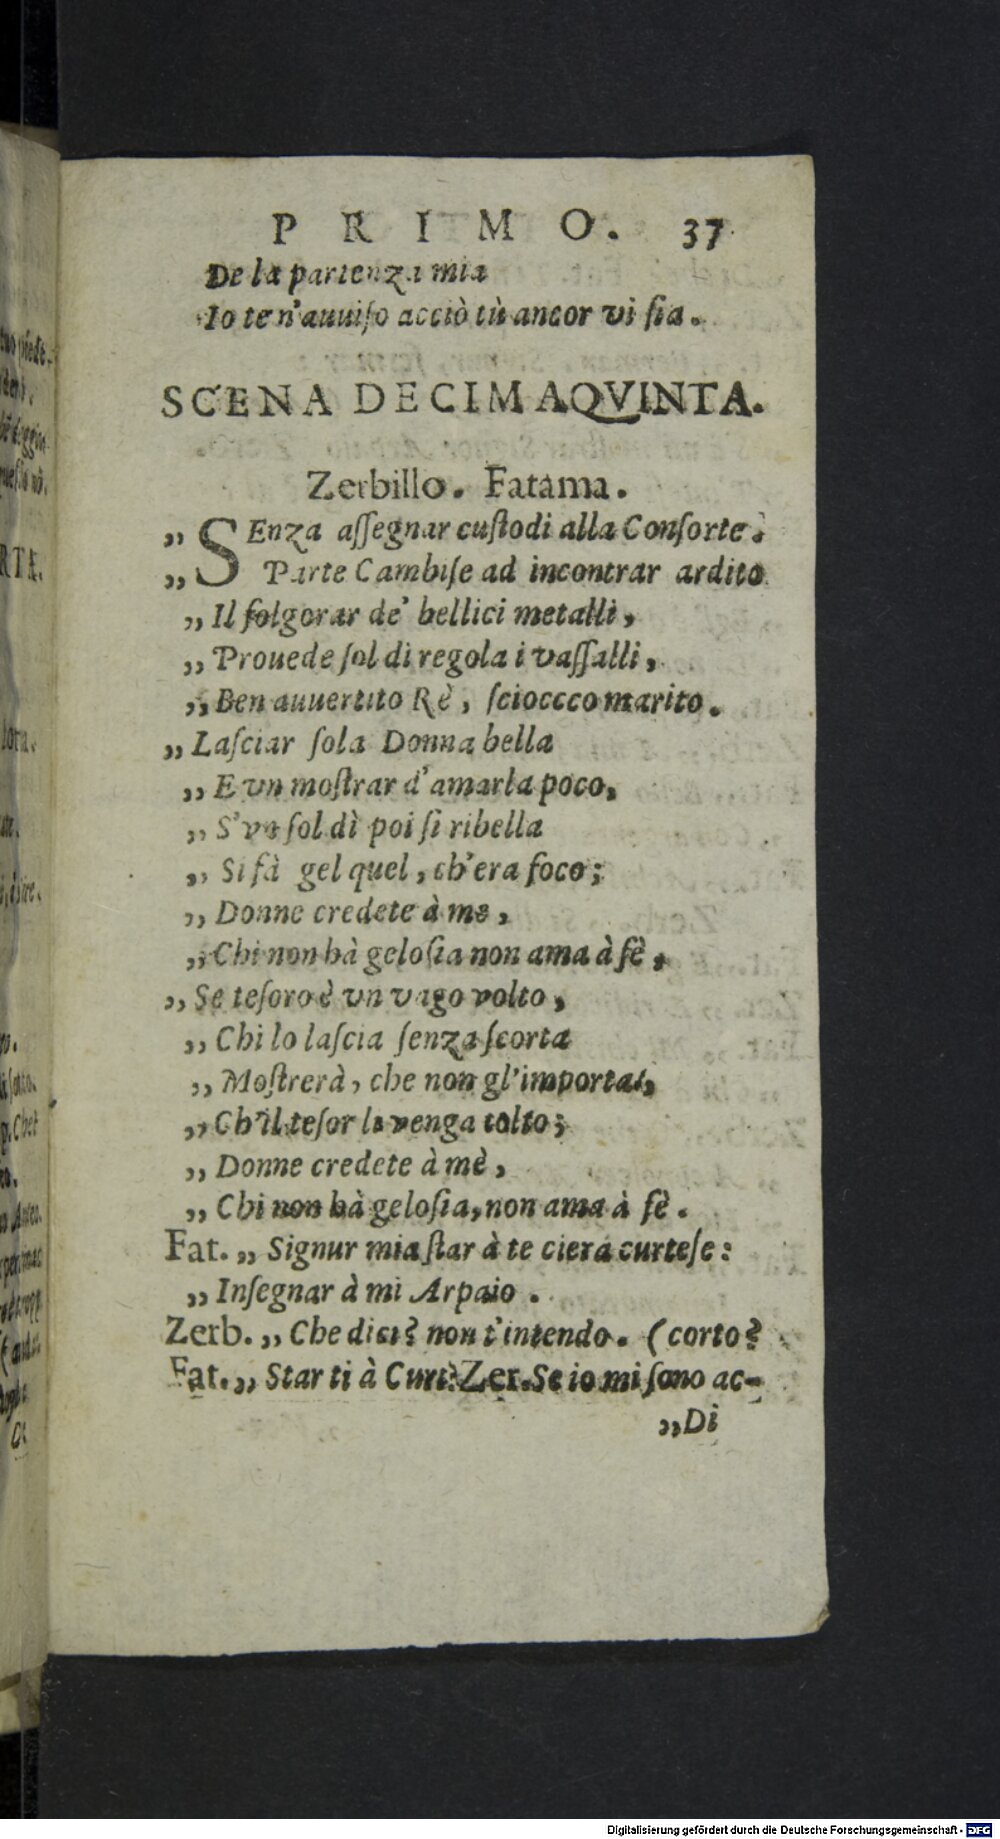 PRIMO. 37
De la partenza mia
Io te n'auuiſo acciò tù ancor vi ſia.
SCENA DECIMAQVINTA.
Zerbillo. Fatama.
„ SEnza aſſegnar cuſtodi alla Conſorte.
„ Parte Cambiſe ad incontrar ardito
„ Il folgorar de' bellici metalli,
„ Prouede ſol di regola i vaſſalli,
„ Ben auuertito Rè, ſcioccco marito.
„ Laſciar ſola Donna bella
„ E vn moſtrar d'amarla poco,
„ S'vn ſol dì poi ſi ribella
„ Si fà gel quel, ch'era foco;
„ Donne credete à me,
„ Chi non hà geloſia non ama à fè,
„ Se teſoro è vn vago volto,
„ Chi lo laſcia ſenza ſcorta
„ Moſtrerà, che non gl'importa,
„ Ch'il teſor li venga tolto;
„ Donne credete à mè,
„ Chi non hà geloſia, non ama à fè.
Fat. „ Signur mia ſtar à te ciera curteſe:
„ Inſegnar à mi Arpaio.
Zerb. „ Che dici? non t'intendo. (corto?
Fat. „ Star ti à Curt? Zer. Se io mi ſono ac-
„ Di
Digitalisierung gefördert durch die Deutsche Forschungsgemeinschaft - DFG